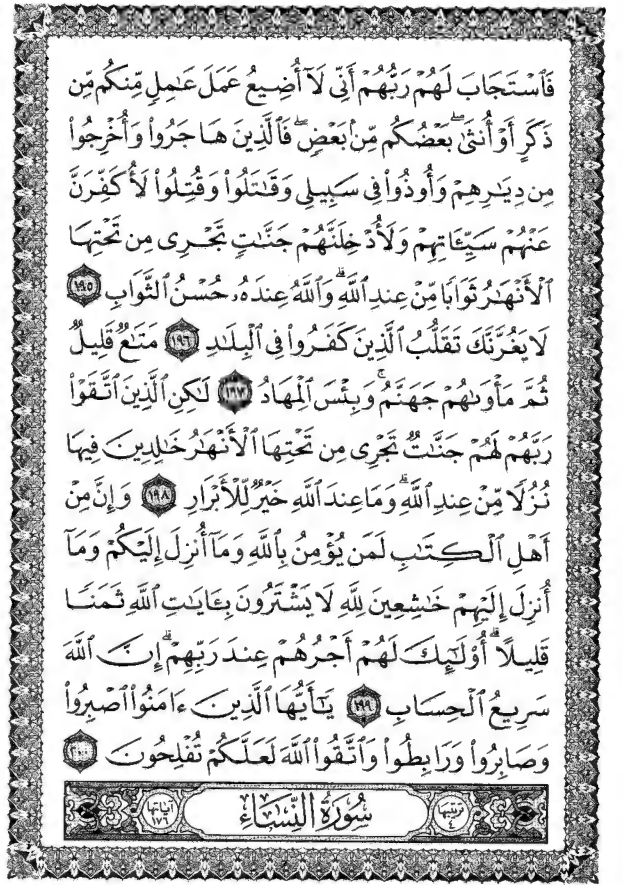 فَٱسْتَجَابَ لَهُمْ رَبُّهُمْ أَنِّى لَآ أُضِيعُ عَمَلَ عَٰمِلٍ مِّنكُم مِّن
ذَكَرٍ أَوْ أُنثَىٰۖ بَعْضُكُم مِّنۢ بَعْضٍۖ فَٱلَّذِينَ هَاجَرُوا۟ وَأُخْرِجُوا۟
مِن دِيَٰرِهِمْ وَأُوذُوا۟ فِى سَبِيلِى وَقَٰتَلُوا۟ وَقُتِلُوا۟ لَأُكَفِّرَنَّ
عَنْهُمْ سَيِّـَٔاتِهِمْ وَلَأُدْخِلَنَّهُمْ جَنَّٰتٍ تَجْرِى مِن تَحْتِهَا
ٱلْأَنْهَٰرُ ثَوَابًا مِّنْ عِندِ ٱللَّهِۗ وَٱللَّهُ عِندَهُۥ حُسْنُ ٱلثَّوَابِ ١٩٥
لَا يَغُرَّنَّكَ تَقَلُّبُ ٱلَّذِينَ كَفَرُوا۟ فِى ٱلْبِلَٰدِ ١٩٦ مَتَٰعٌ قَلِيلٌ
ثُمَّ مَأْوَىٰهُمْ جَهَنَّمُۚ وَبِئْسَ ٱلْمِهَادُ ١٩٧ لَٰكِنِ ٱلَّذِينَ ٱتَّقَوْا۟
رَبَّهُمْ لَهُمْ جَنَّٰتٌ تَجْرِى مِن تَحْتِهَا ٱلْأَنْهَٰرُ خَٰلِدِينَ فِيهَا
نُزُلًا مِّنْ عِندِ ٱللَّهِۗ وَمَا عِندَ ٱللَّهِ خَيْرٌ لِّلْأَبْرَارِ ١٩٨ وَإِنَّ مِنْ
أَهْلِ ٱلْكِتَٰبِ لَمَن يُؤْمِنُ بِٱللَّهِ وَمَآ أُنزِلَ إِلَيْكُمْ وَمَآ
أُنزِلَ إِلَيْهِمْ خَٰشِعِينَ لِلَّهِ لَا يَشْتَرُونَ بِـَٔايَٰتِ ٱللَّهِ ثَمَنًا
قَلِيلًاۗ أُو۟لَٰٓئِكَ لَهُمْ أَجْرُهُمْ عِندَ رَبِّهِمْۗ إِنَّ ٱللَّهَ
سَرِيعُ ٱلْحِسَابِ ١٩٩ يَٰٓأَيُّهَا ٱلَّذِينَ ءَامَنُوا۟ ٱصْبِرُوا۟
وَصَابِرُوا۟ وَرَابِطُوا۟ وَٱتَّقُوا۟ ٱللَّهَ لَعَلَّكُمْ تُفْلِحُونَ ٢٠٠
ترتيبها ٤ سُورَةُ النِّسَاءِ آياتها ١٧٦